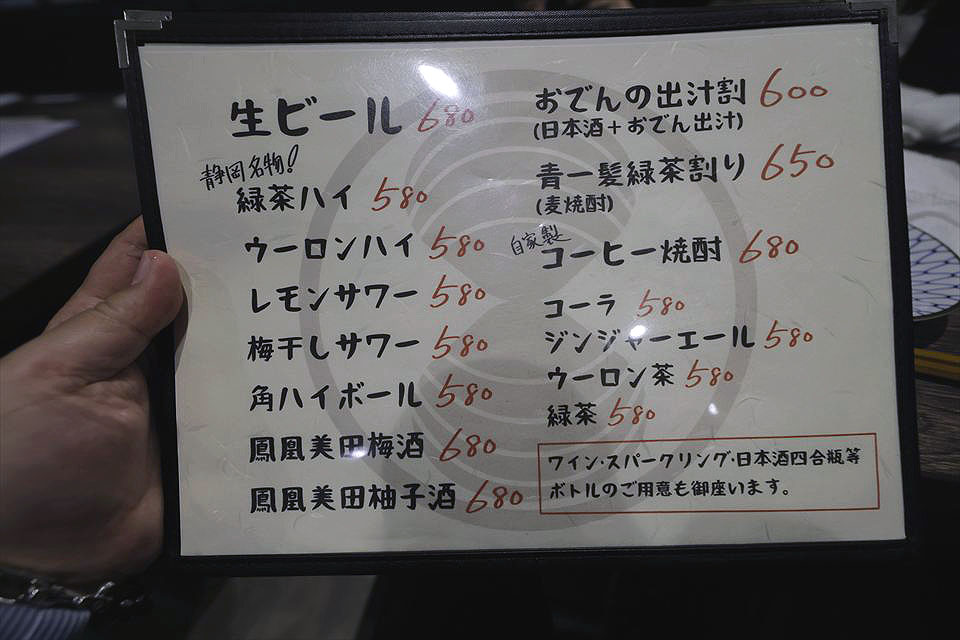 生ビール 680
静岡名物!
緑茶ハイ 580
ウーロンハイ 580
レモンサワー 580
梅干しサワー 580
角ハイボール 580
鳳凰美田梅酒 680
鳳凰美田柚子酒 680
おでんの出汁割 600
(日本酒+おでん出汁)
青一髪緑茶割り 650
(麦焼酎)
自家製
コーヒー焼酎 680
コーラ 580
ジンジャーエール 580
ウーロン茶 580
緑茶 580
ワイン・スパークリング・日本酒四合瓶等
ボトルのご用意も御座います。